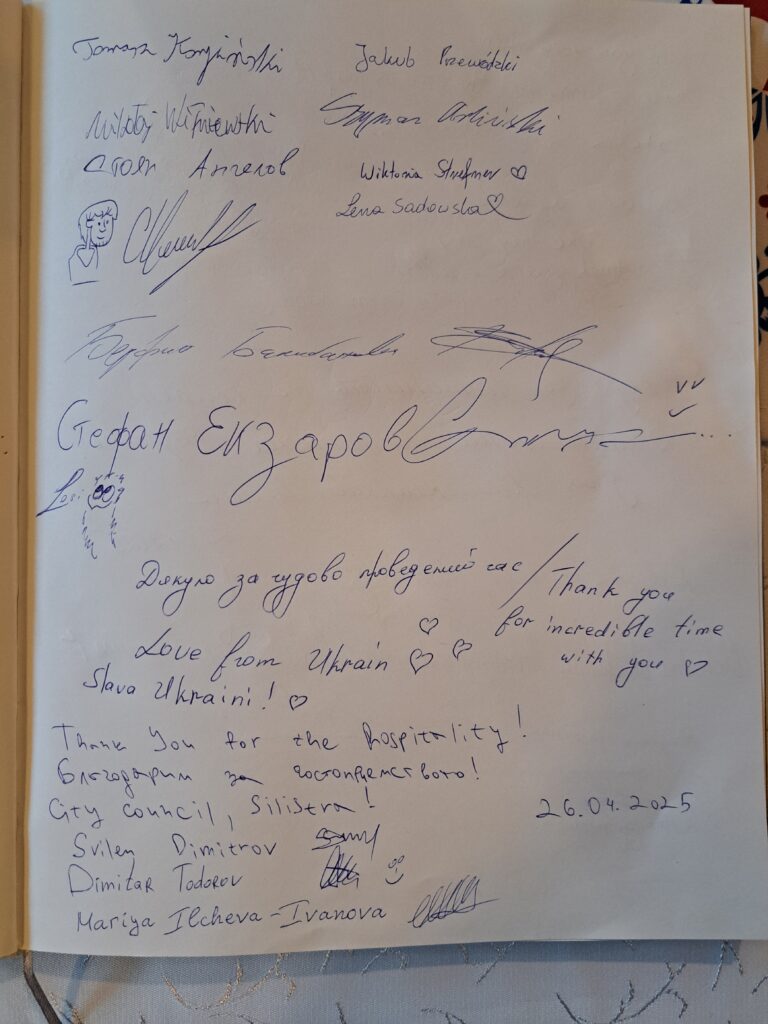 Tomasz
Jakub Przewódzki
Mikołaj Wiśniewski
Szymon
Стоян Ангелов
Wiktoria
Lena Sadowska
Стефан Екзаров
Lori
Дякую за чудово проведений час / Thank you
for incredible time
with you
Love from Ukrain
Slava Ukraini!
Thank You for the hospitality!
Благодарим за гостоприемството!
City council, Silistra!
26.04.2025
Svilen Dimitrov
Dimitar Todorov
Mariya Ilcheva-Ivanova